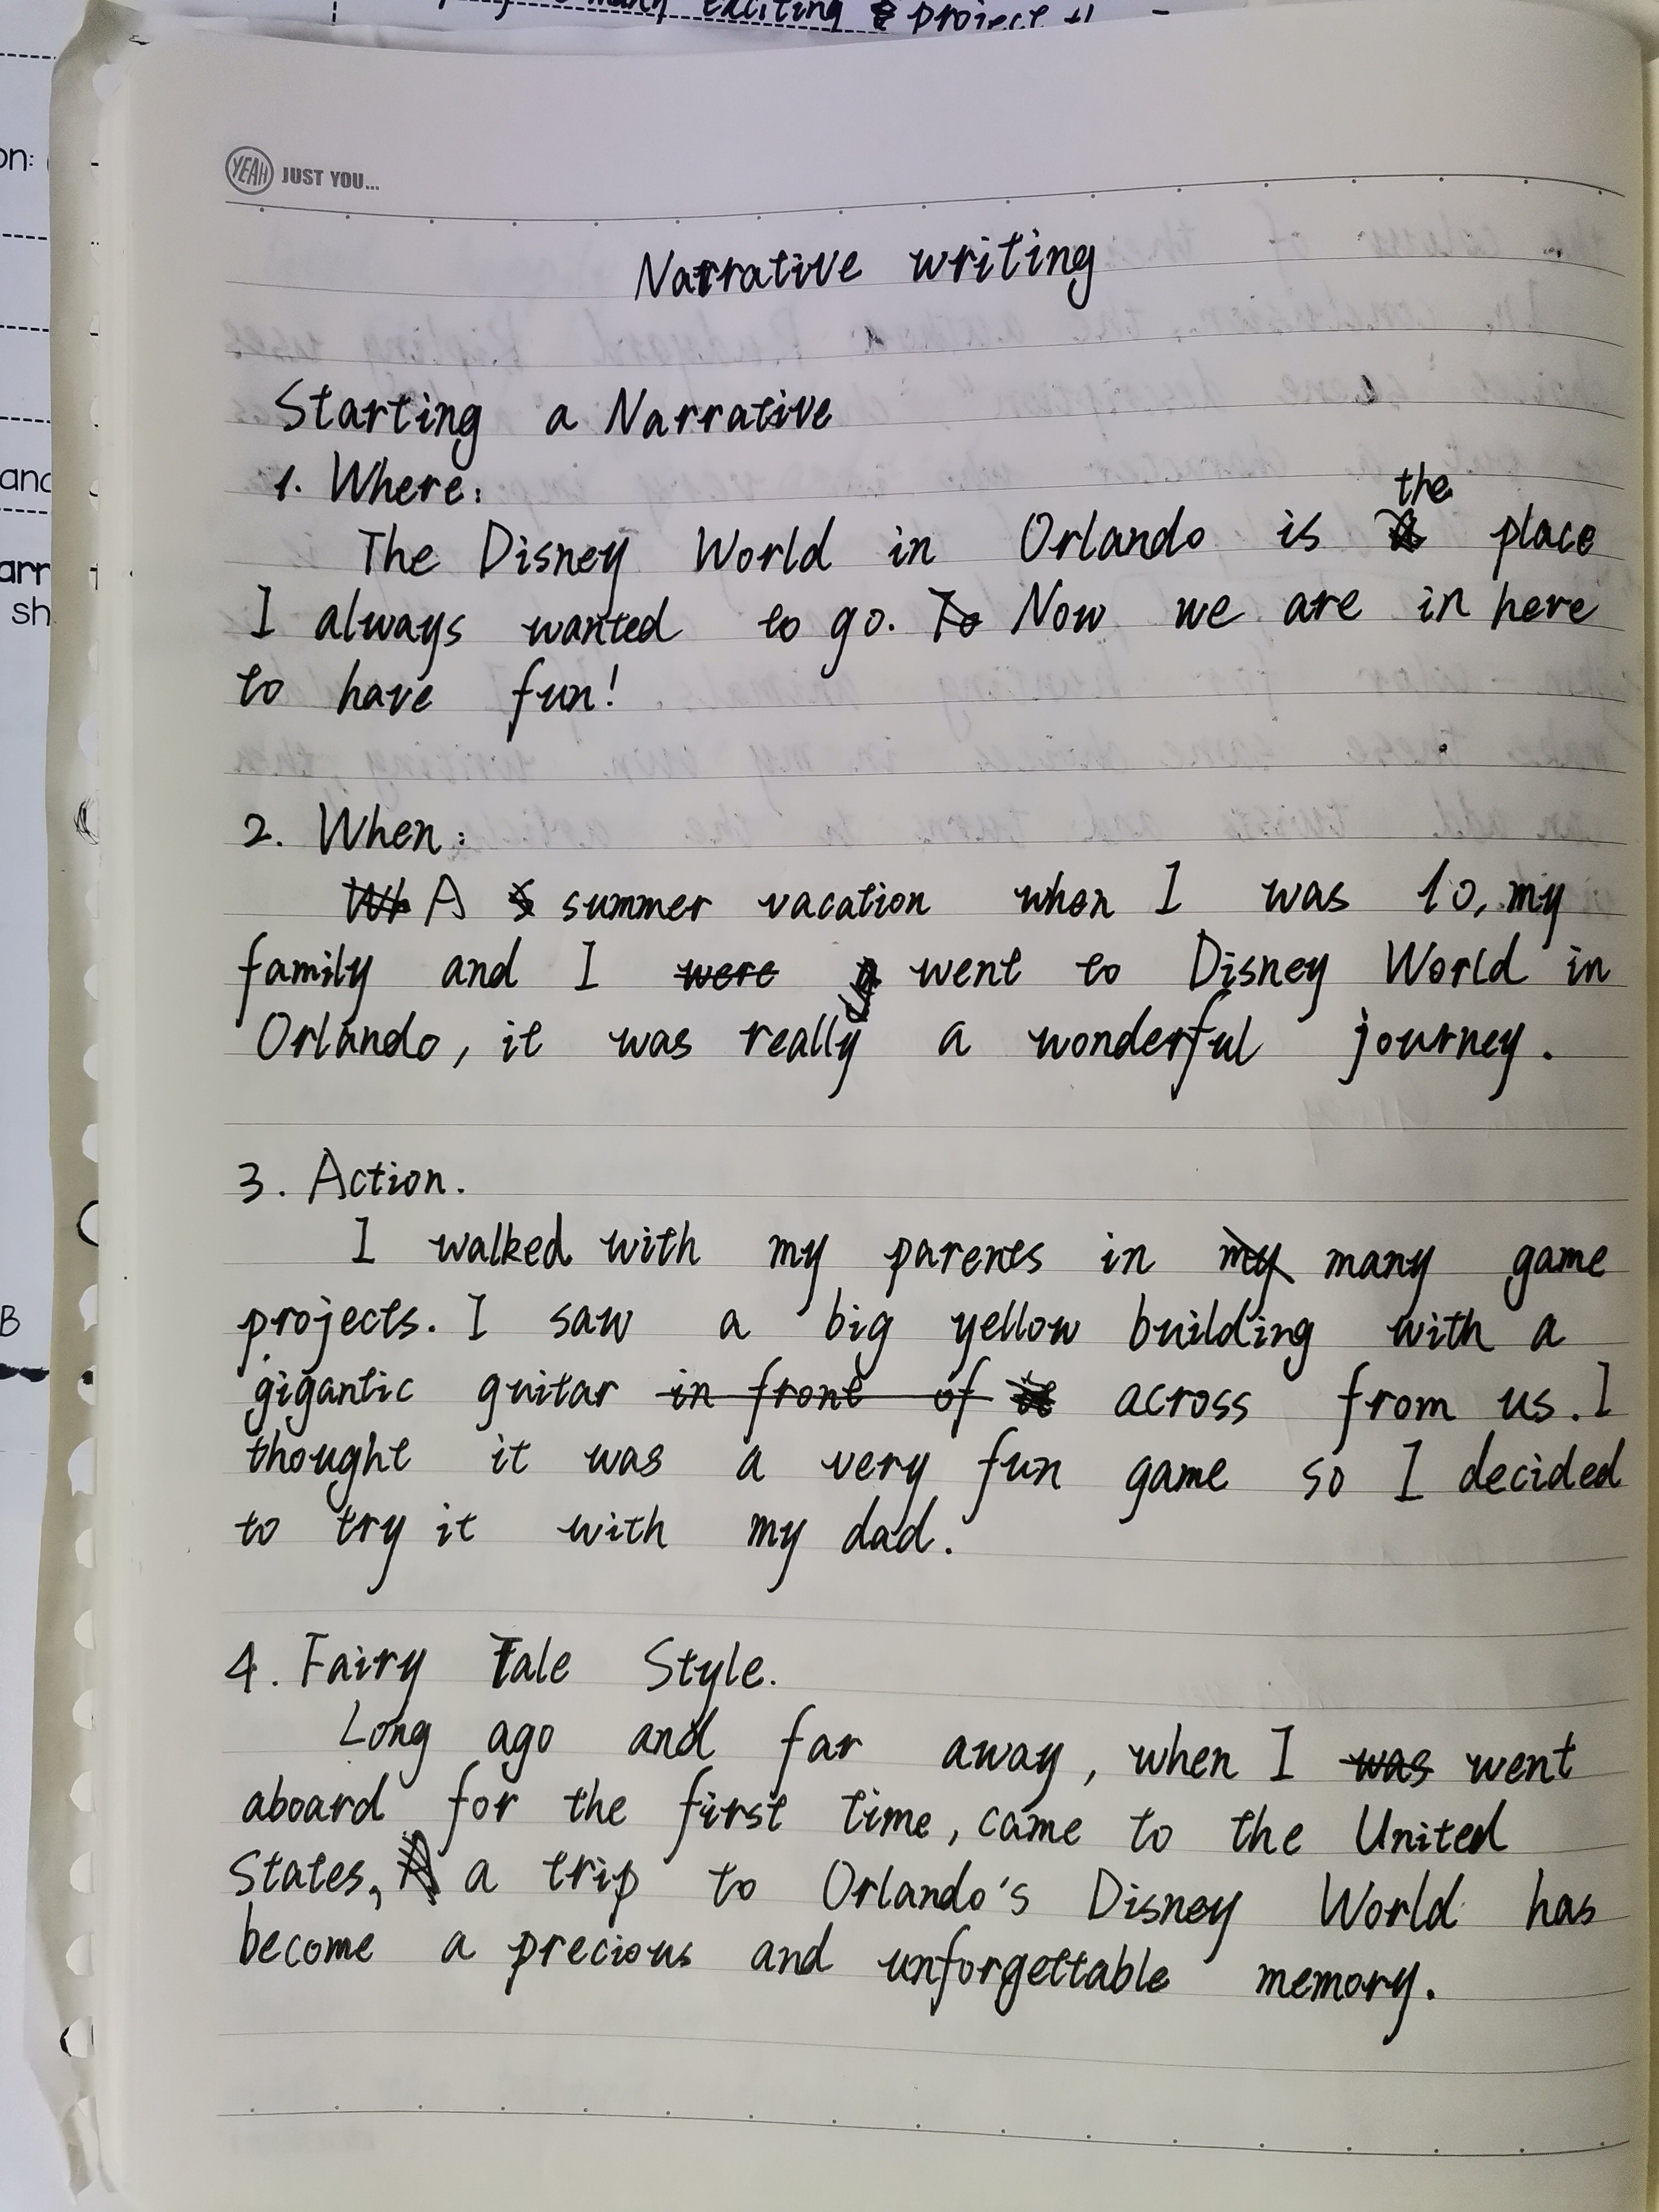 exciting & project
on:
and
arr
sh
B
YEAH JUST YOU...
Narrative writing
Starting a Narrative
1. Where:
the
The Disney World in Orlando is place
I always wanted to go. To Now we are in here
to have fun!
2. When:
Wh A s summer vacation when I was 10, my
family and I were went to Disney World in
Orlando, it was really a wonderful journey.
3. Action.
I walked with my parents in my many game
projects. I saw a big yellow building with a
gigantic guitar in front of it across from us. I
thought it was a very fun game so I decided
to try it with my dad.
4. Fairy Tale Style.
Long ago and far away, when I was went
aboard for the first time, came to the United
States, A a trip to Orlando's Disney World has
become a precious and unforgettable memory.